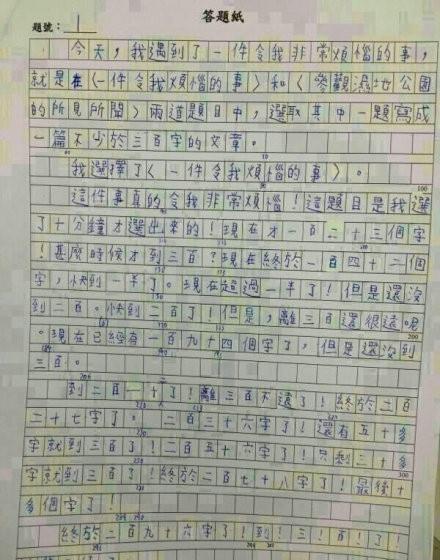 答題紙
題號：1
今天，我遇到了一件令我非常煩惱的事，
就是在〈一件令我煩惱的事〉和〈參觀濕地公園
的所見所聞〉兩道題目中，選取其中一題寫成
一篇不少於三百字的文章。
我選擇了〈一件令我煩惱的事〉。
這件事真的令我非常煩惱！這題目是我選
了十分鐘才選出來的！現在才一百二十三個字
！甚麼時候才到三百？現在終於一百四十二個
字，快到一半了。現在超過一半了！但是還沒
到二百。快到二百了！但是，離三百還很遠呢
。現在已經有一百九十四個字了，但是還沒到
三百。
到二百一十了！離三百不遠了！終於二百
二十七字了。二百三十六字了！還有五十多
字就到三百了！二百五十六字了！只剩三十多
字就到三百了！終於二百七十八字了！最後十
多個字了！
終於二百九十六字了！到！三！百！了！